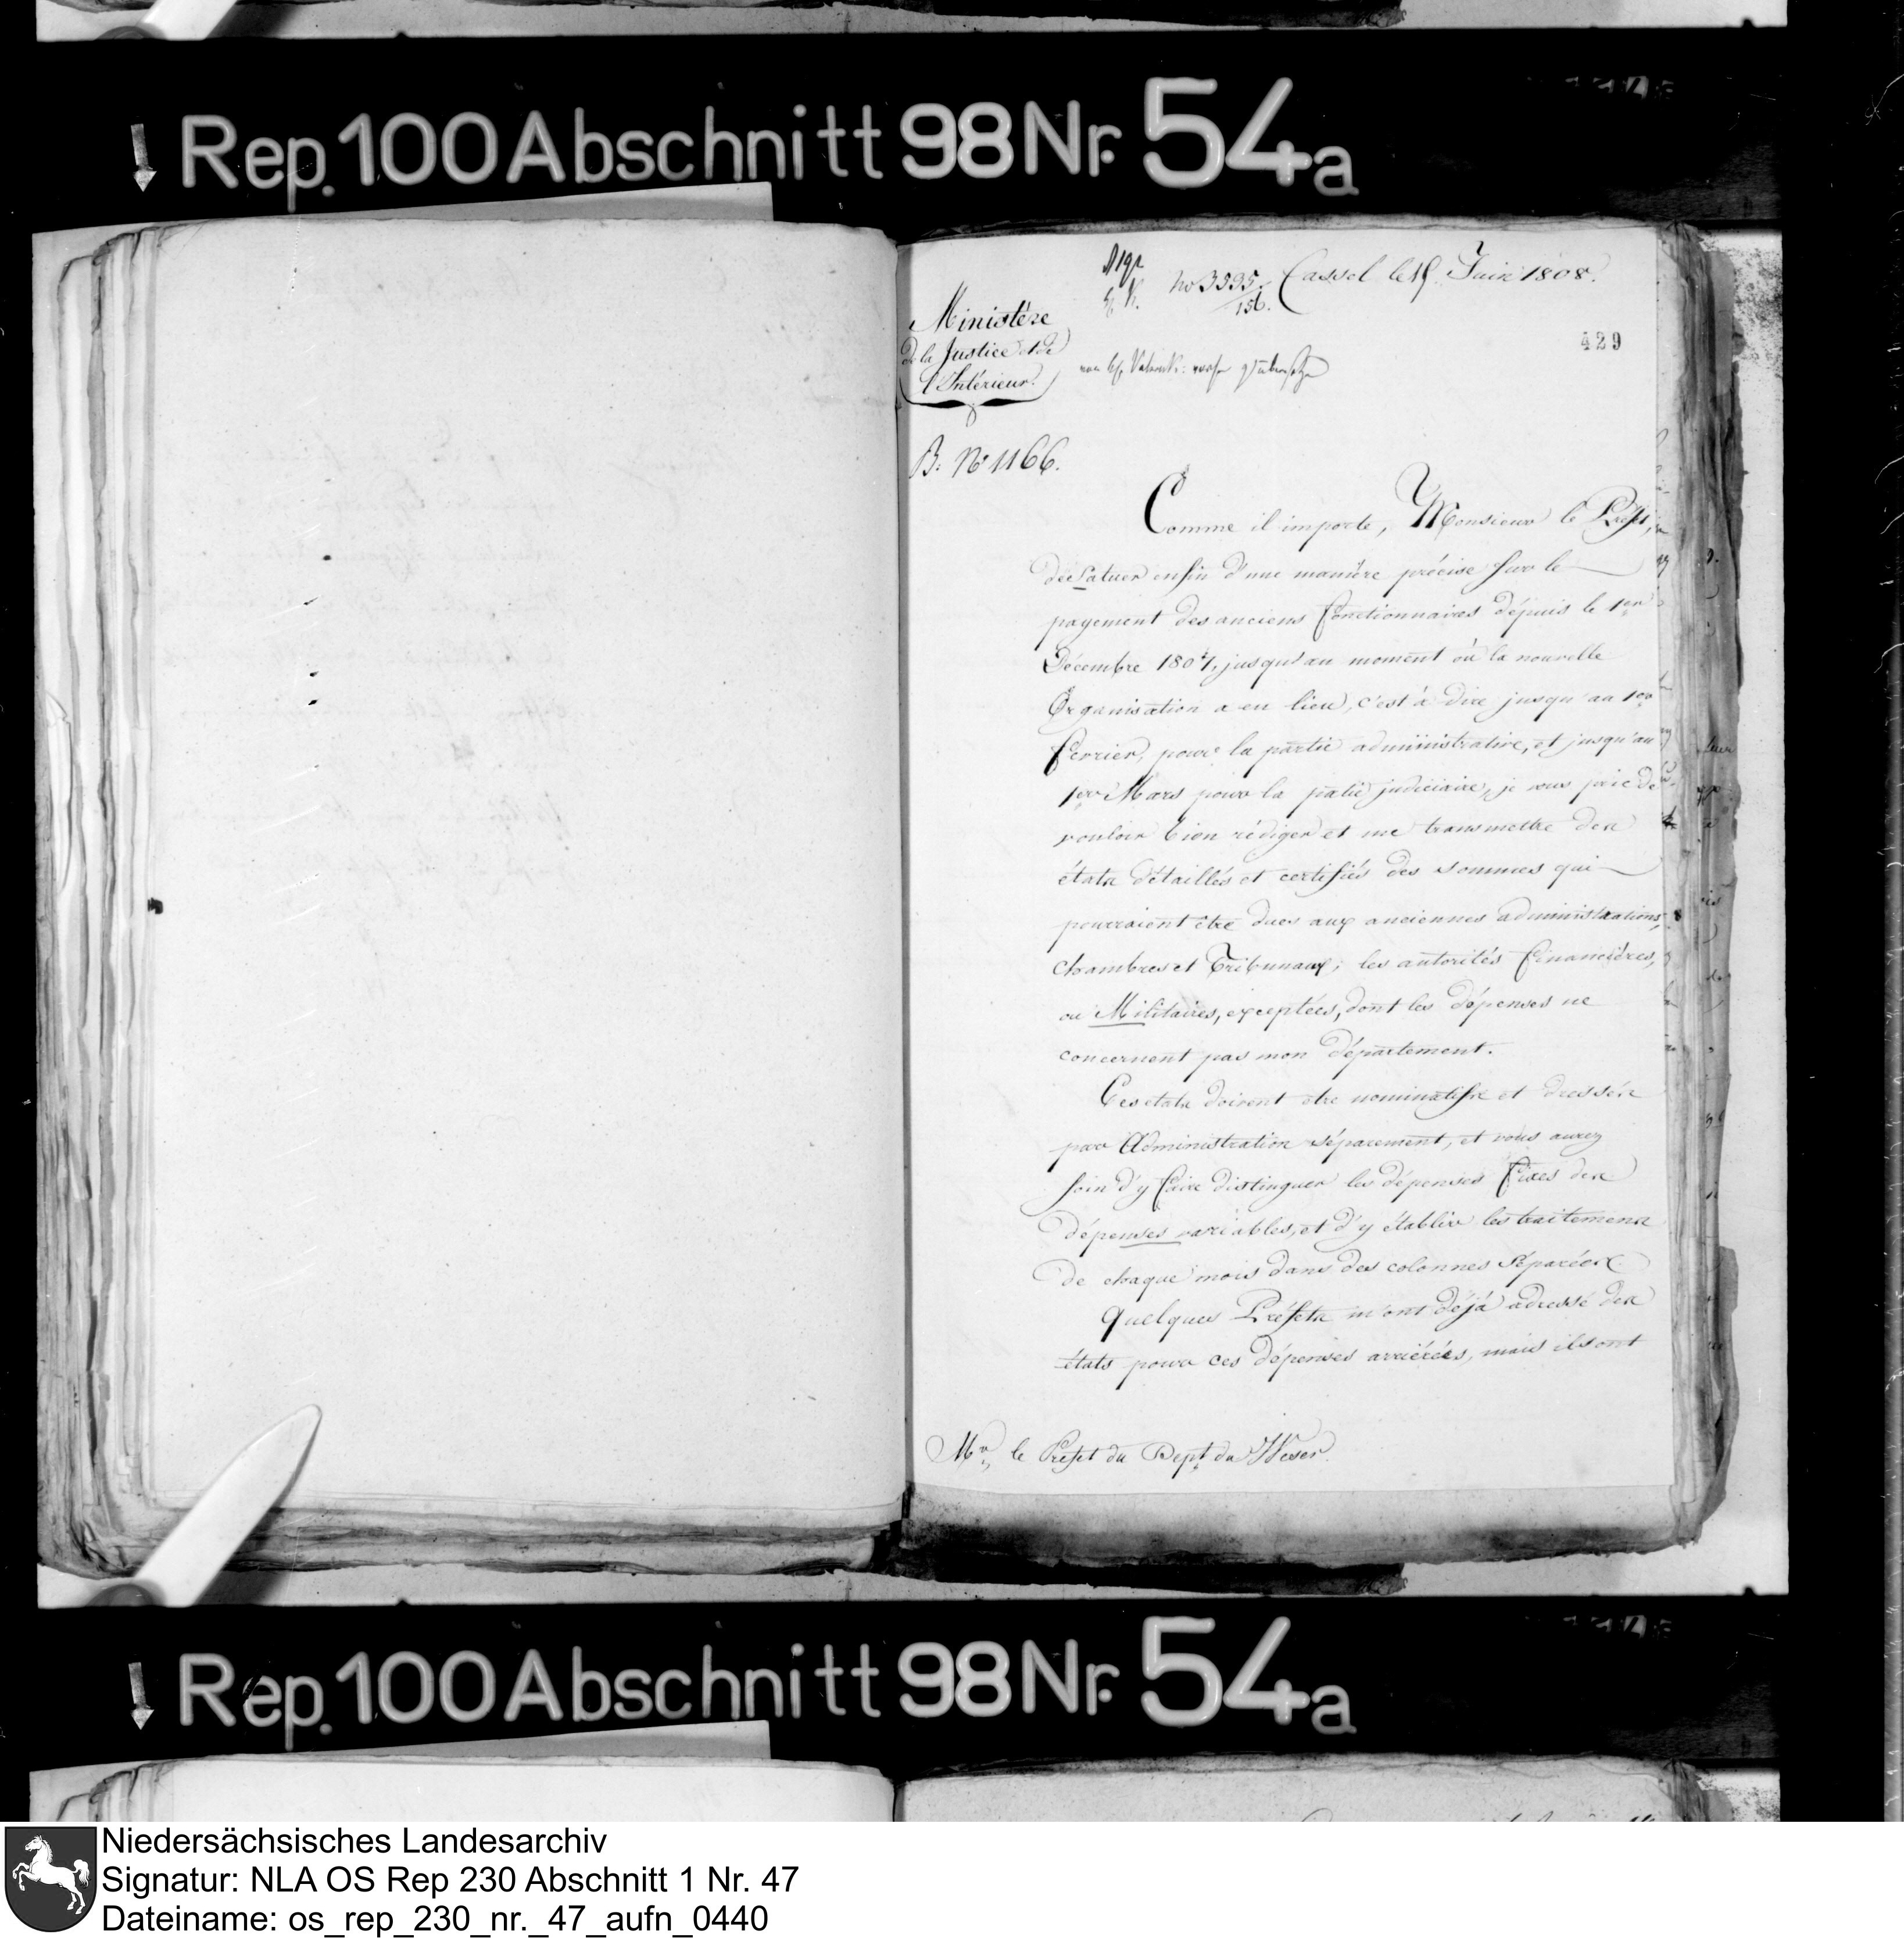 Rep. 100 Abschnitt 98 Nr. 54a
No 3595. Cassel le 15 Juin 1808.
156.
429
Ministère
de la Justice et de
l'Intérieur.
B: No 1166.
Comme il importe, Monsieur le Préfet,
de statuer enfin d'une manière précise sur le
payement des anciens fonctionnaires dépuis le 1er
Décembre 1807, jusqu'au moment où la nouvelle
Organisation a eu lieu, c'est à dire jusqu'au 1er
fevrier, pour la partie administrative, et jusqu'au
1er Mars pour la patie judiciaire, je vous prie de
vouloir bien rédiger et me transmettre des
états détaillés et certifiés des sommes qui
pourraient être dues aux anciennes administrations,
chambres et Tribunaux; les autorités financières,
ou Militaires, exceptées, dont les dépenses ne
concernent pas mon département.
Ces etats doivent etre nominatifs et dressés
par Administration séparement, et vous aurez
soin d'y faire distinguer les dépenses fixes des
dépenses variables, et d'y établir les traitemens
de chaque mois dans des colonnes séparées.
Quelques Préfets m'ont déjà adressé des
états pour ces dépenses arriérées, mais ils ont
Mr. le Prefet du Dept. du Weser.
Rep. 100 Abschnitt 98 Nr. 54a
Niedersächsisches Landesarchiv
Signatur: NLA OS Rep 230 Abschnitt 1 Nr. 47
Dateiname: os_rep_230_nr._47_aufn_0440